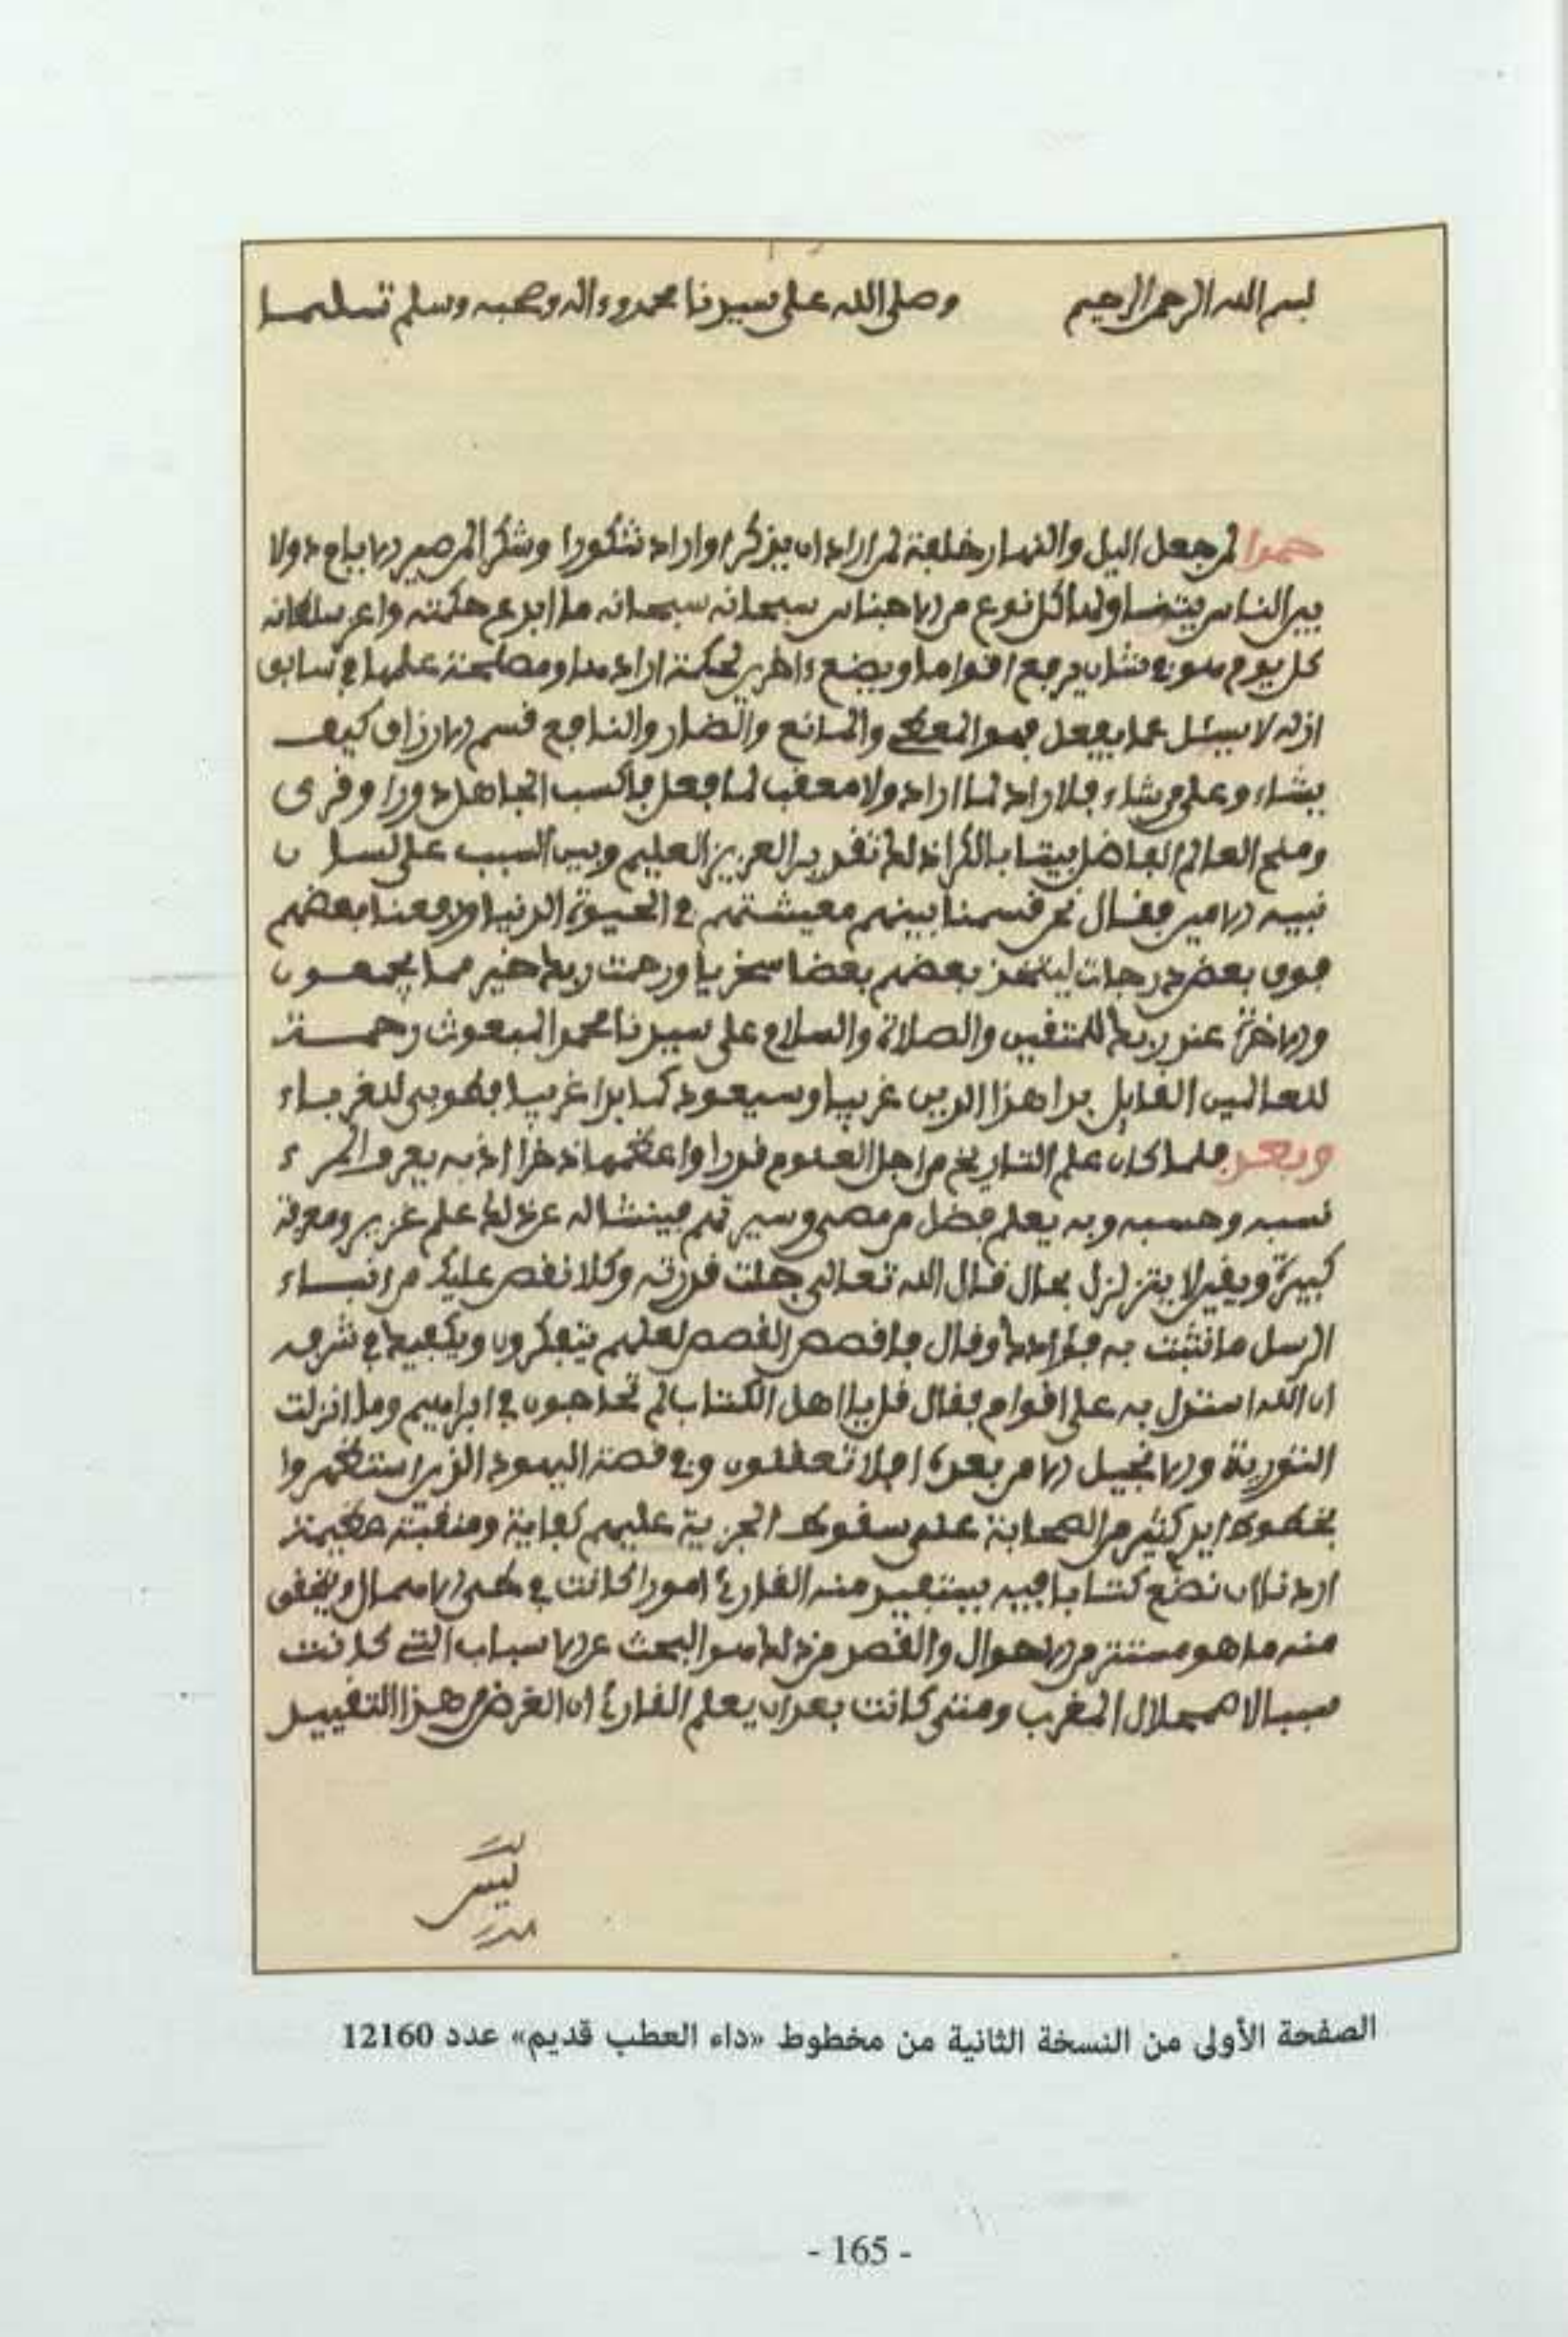 بسم الله الرحمن الرحيم وصلى الله على سيدنا محمد وءاله وصحبه وسلم تسليما
حمدا لمن جعل اليل والنهار خلفة لمن اراد ان يذكر او اراد شكورا وشكرا لمن صير الايام دولا
بين الناس يتضاولها كل نوع من الاجناس سبحانه سبحانه ما ابدع حكمته واعز سلطانه
كل يوم هو في شان يرفع اقواما ويضع ءاخرين لحكمة ارادها ومصلحة علمها في سابق
ازله لا يسئل عما يفعل فهو المعطي والمانع والضار والنافع قسم الارزاق كيف
يشاء وعلى من يشاء فلا راد لما اراد ولا معقب لما فعل فاكسب الجاهل دورا وقرى
ومنح العالم الفاضل بيتا بالكرا ذلك تقدير العزيز العليم وبين السبب على لسان
نبيه الامين فقال نحن قسمنا بينهم معيشتهم في الحيوة الدنيا ورفعنا بعضهم
فوق بعض درجات ليتخذ بعضهم بعضا سخريا ورحمت ربك خير مما يجمعون
والاخرة عند ربك للمتقين والصلاة والسلام على سيدنا محمد المبعوث رحمة
للعالمين القايل بدا هذا الدين غريبا وسيعود كما بدا غريبا فطوبى للغرباء
وبعد فلما كان علم التاريخ من اجل العلوم قدرا واعظمها ذخرا اذ به يعرف المرء
نسبه وحسبه وبه يعلم فضل من مضى وسيرتهم فينشا له عن ذلك علم غزير ومعرفة
كبيرة ويقين لا يتزلزل بحال قال الله تعالى جلت قدرته وكلا نقص عليك من انباء
الرسل ما نثبت به فؤادك وقال فاقصص القصص لعلهم يتفكرون ويكفيك في شرفه
ان الله استدل به على اقوام فقال قل يا اهل الكتاب لم تحاجون في ابراهيم وما انزلت
التورية والانجيل الا من بعده افلا تعقلون وفي قصة اليهود الذين استظهروا
بخطوط ايد كثير من الصحابة على سقوط الجزية عليهم كفاية ومنقبة عظيمة
اردنا ان نضع كتابا فيه يستفيد منه القارئ امورا كانت في طي الاهمال ويتحقق
منه ما هو مستتر من الاحوال والقصد من ذلك هو البحث عن الاسباب التي كانت
سببا لاضمحلال المغرب ومتى كانت بعد ان يعلم القارئ ان الغرض من هذا التقييد
ليس
الصفحة الأولى من النسخة الثانية من مخطوط «داء العطب قديم» عدد 12160
- 165 -